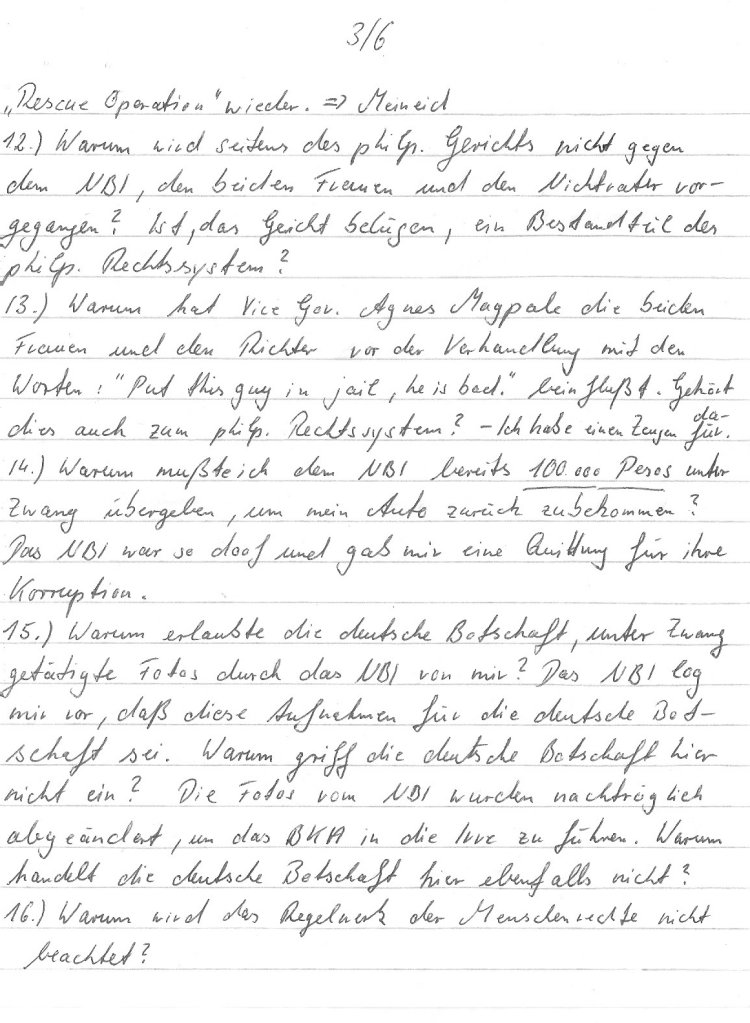 3/6
„Rescue Operation" wieder. => Meineid
12.) Warum wird seitens des philp. Gerichts nicht gegen
dem NBI, den beiden Frauen und den Nichtvater vor-
gegangen? Ist, das Geicht belügen, ein Bestandteil des
philp. Rechtssystem?
13.) Warum hat Vice Gov. Agnes Magpale die beiden
Frauen und den Richter vor der Verhandlung mit den
Worten: "Put this guy in jail, he is bad." beinflußt. Gehört
dies auch zum philp. Rechtssystem? - Ich habe einen Zeugen da-
für.
14.) Warum mußte ich dem NBI bereits 100.000 Pesos unter
Zwang übergeben, um mein Auto zurück zubekommen?
Das NBI war so doof und gab mir eine Quittung für ihre
Korruption.
15.) Warum erlaubte die deutsche Botschaft, unter Zwang
getätigte Fotos durch das NBI von mir? Das NBI log
mir vor, daß diese Aufnahmen für die deutsche Bot-
schaft sei. Warum griff die deutsche Botschaft hier
nicht ein? Die Fotos vom NBI wurden nachträglich
abgeändert, um das BKA in die Irre zu führen. Warum
handelt die deutsche Botschaft hier ebenfalls nicht?
16.) Warum wird das Regelwerk der Menschenrechte nicht
beachtet?